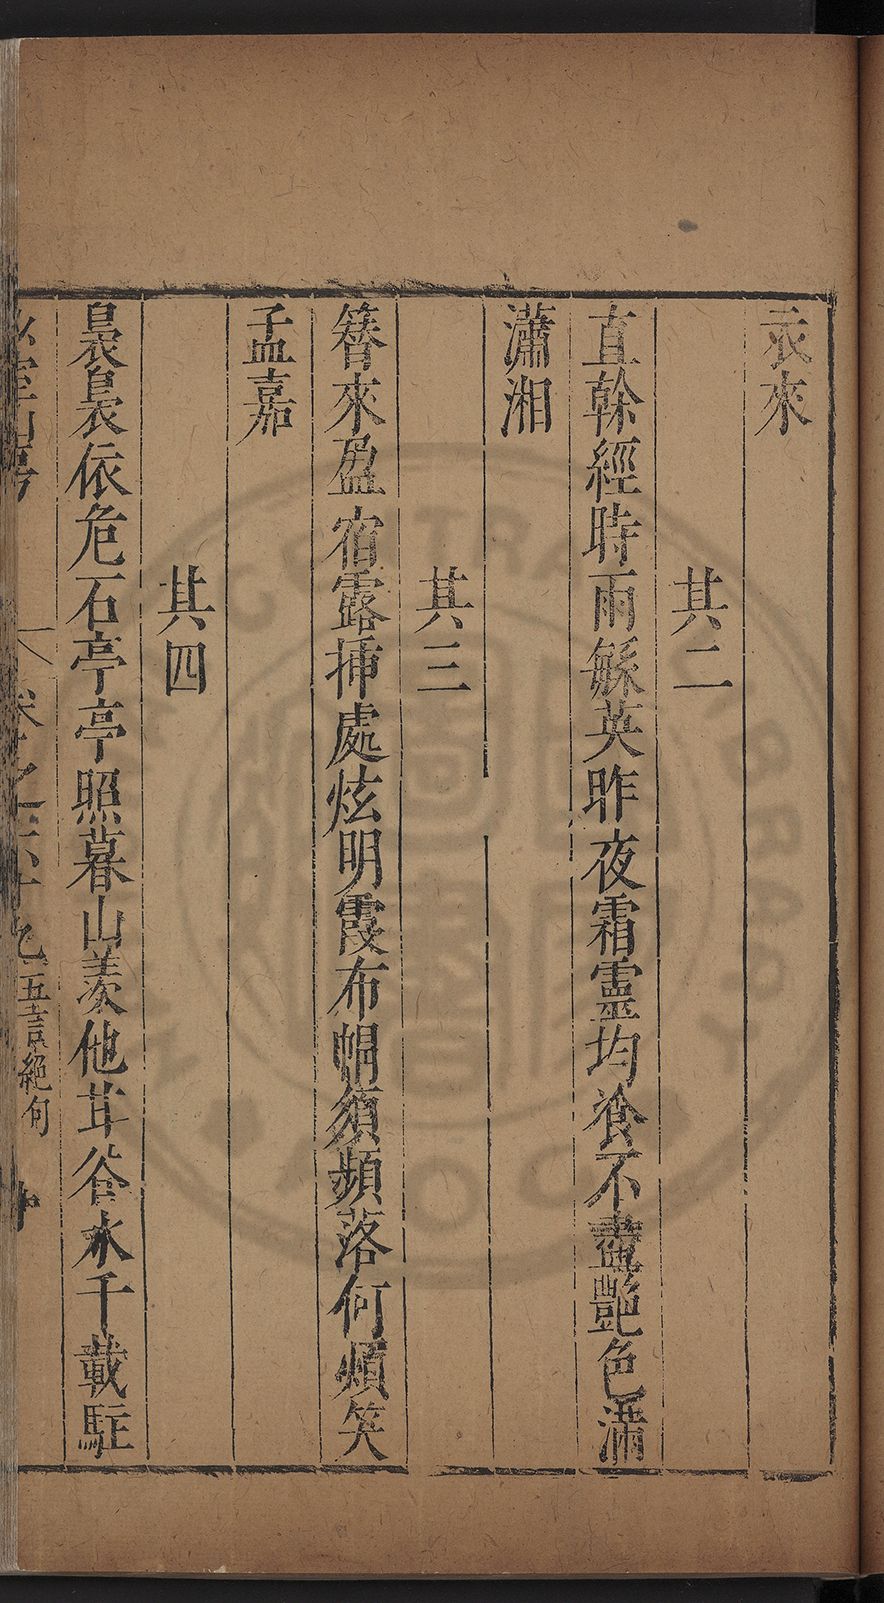 衣來
其二
直幹經時雨繇英昨夜霜靈均飡不盡豔色滿
瀟湘
其三
簪來盈宿露揷處炫明霞布帽須頻落何煩笑
孟嘉
其四
裊裊依危石亭亭照暮山羨他甘谷水千載駐
卷之六十九五言絕句